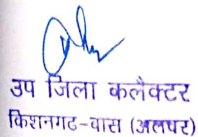 उप जिला कलैक्टर
किशनगढ-वास (अलवर)